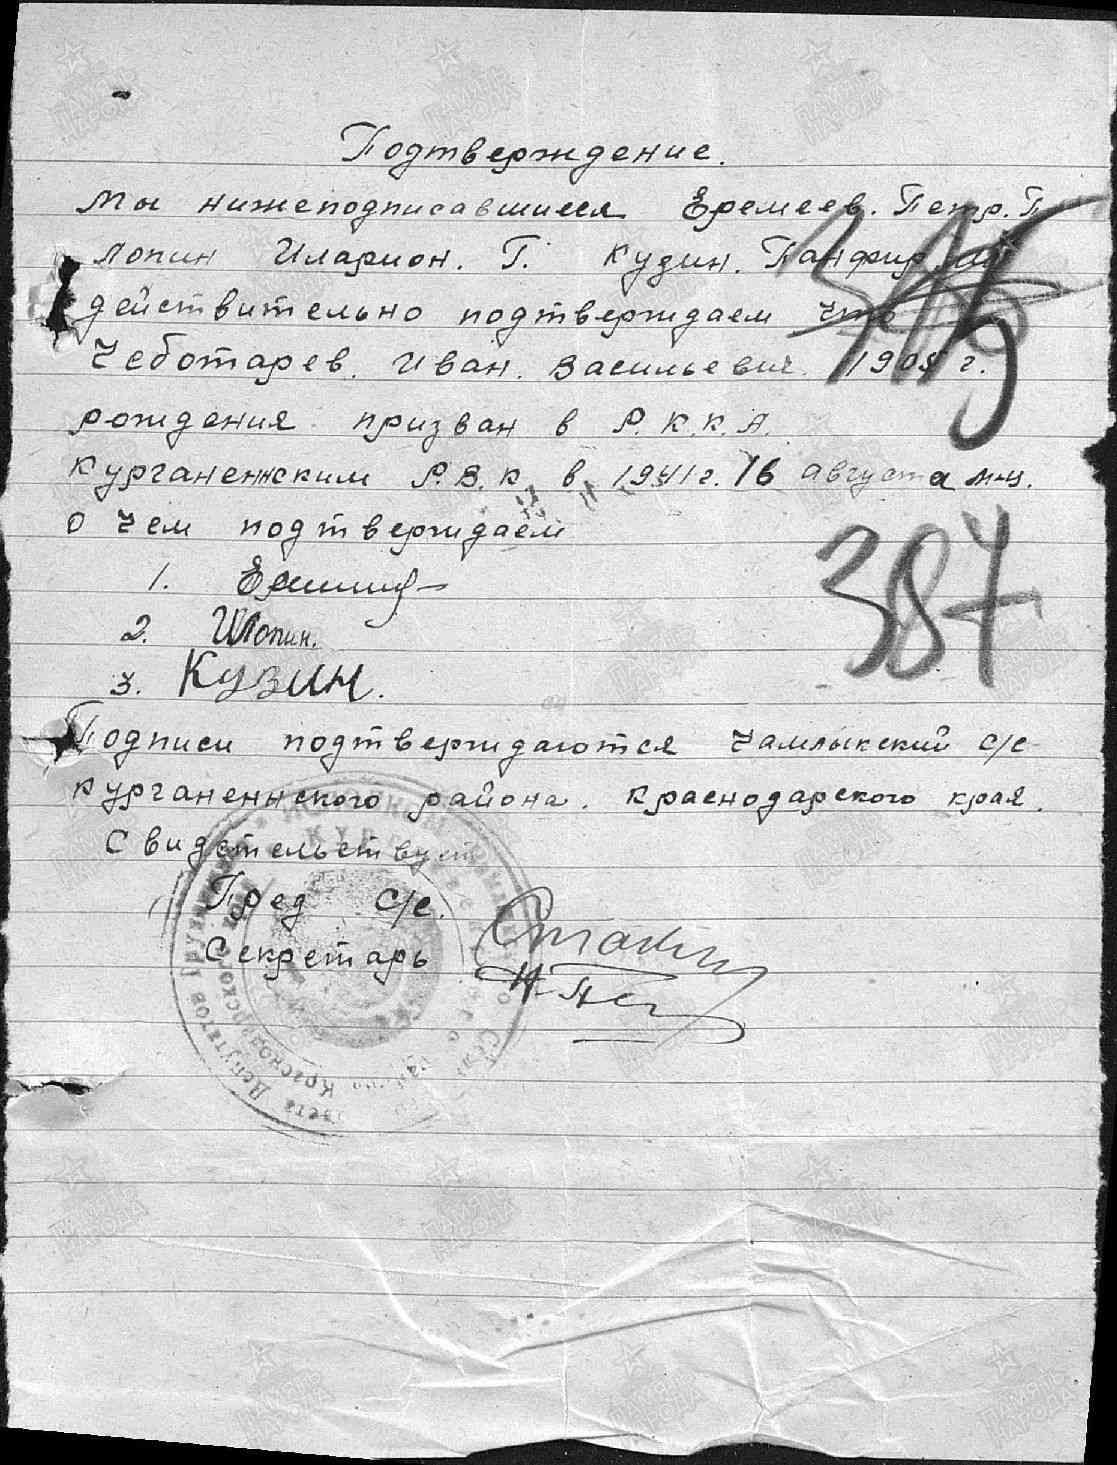 Подтверждение.
Мы нижеподписавшиеся Еремеев. Петр. П
Лопин Иларион. Г. Кузин. Панфир.
действительно подтверждаем что
Чеботарев. Иван. Васильевич. 1905 г.
рождения призван в Р.К.К.А.
Курганеннским Р.В.К в 1941 г. 16 августа м-ц.
о чем подтверждаем
387
1.
2. ИЛопин.
3. Кузин.
Подписи подтверждаются Чамлыкский с/с
Курганеннского района. Краснодарского края.
Свидетельствует
Пред с/с.
Секретарь